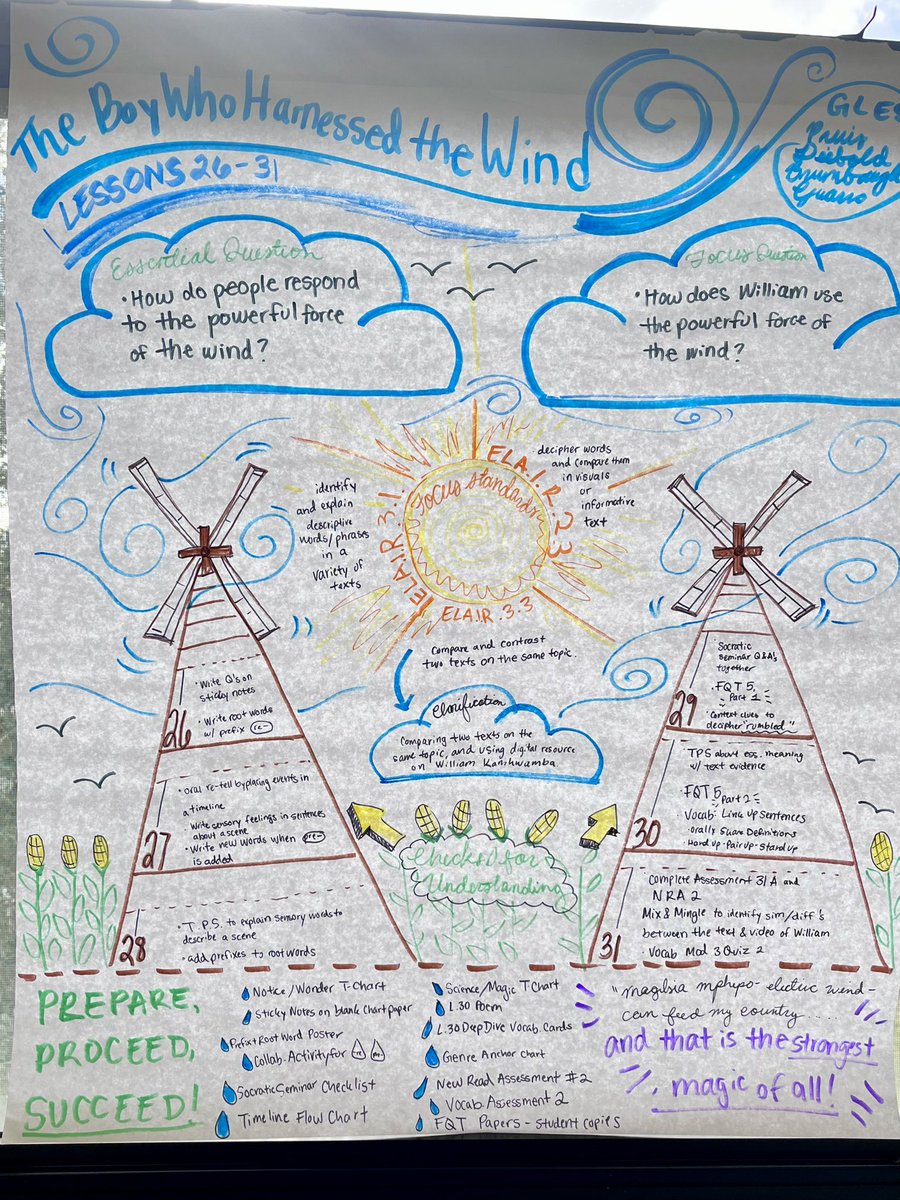 The Boy Who Harnessed the Wind
LESSONS 26-31
GLES
Diebold
Essential Question
• How do people respond
to the powerful force
of the wind?
Focus Question
• How does William use
the powerful force of
the wind?
Focus Standards
ELA.1.R.3.1
identify
and explain
descriptive
words/phrases
in a
variety of
texts
ELA.1.R.2.3
decipher words
and compare them
in visuals
or
informative
text
ELA.1.R.3.3
Compare and contrast
two texts on the same topic.
Clarification
Comparing two texts on the
same topic, and using digital resource
on William Kamkwamba.
26
• Write Q's on
sticky notes
• Write root words
w/ prefix re-
27
• oral re-tell by placing events in
a timeline
Write sensory feelings in sentences
about a scene
• Write new words when pre-
is added
28
• T.P.S. to explain sensory words to
describe a scene
• add prefixes to root words
29
• Socratic
seminar Q&A's
together
• FQT 5
Part 1
• Context clues to
decipher "rumbled"
30
TPS about ess. meaning
w/ text evidence
FQT 5
Part 2
Vocab: Link Up Sentences
• orally share Definitions
• Hand up - Pair up - Stand up
31
Complete Assessment 31 A and
NRA 2
Mix & Mingle to identify sim/diff's
between the text & video of William
• Vocab Mod 3 Quiz 2
Checks for
Understanding
PREPARE,
PROCEED,
SUCCEED!
Notice/Wonder T-Chart
Sticky Notes on blank Chart paper
Prefix+Root Word Poster
Collab Activity for re pre
Socratic Seminar Checklist
Timeline Flow Chart
Science/Magic T Chart
L.30 Poem
L.30 Deep Dive Vocab Cards
Genre Anchor Chart
New Read Assessment #2
Vocab Assessment 2
FQT Papers - student copies
"magetsi a mphepo - electric wind -
can feed my country....
and that is the strongest
magic of all!